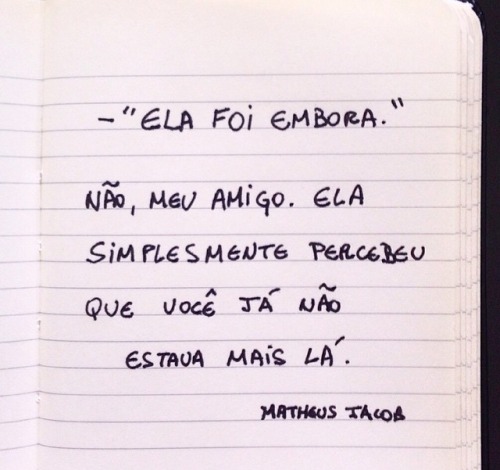 - "ELA FOI EMBORA."
NÃO, MEU AMIGO. ELA
SIMPLESMENTE PERCEBEU
QUE VOCÊ JÁ NÃO
ESTAVA MAIS LÁ.
MATHEUS JACOB